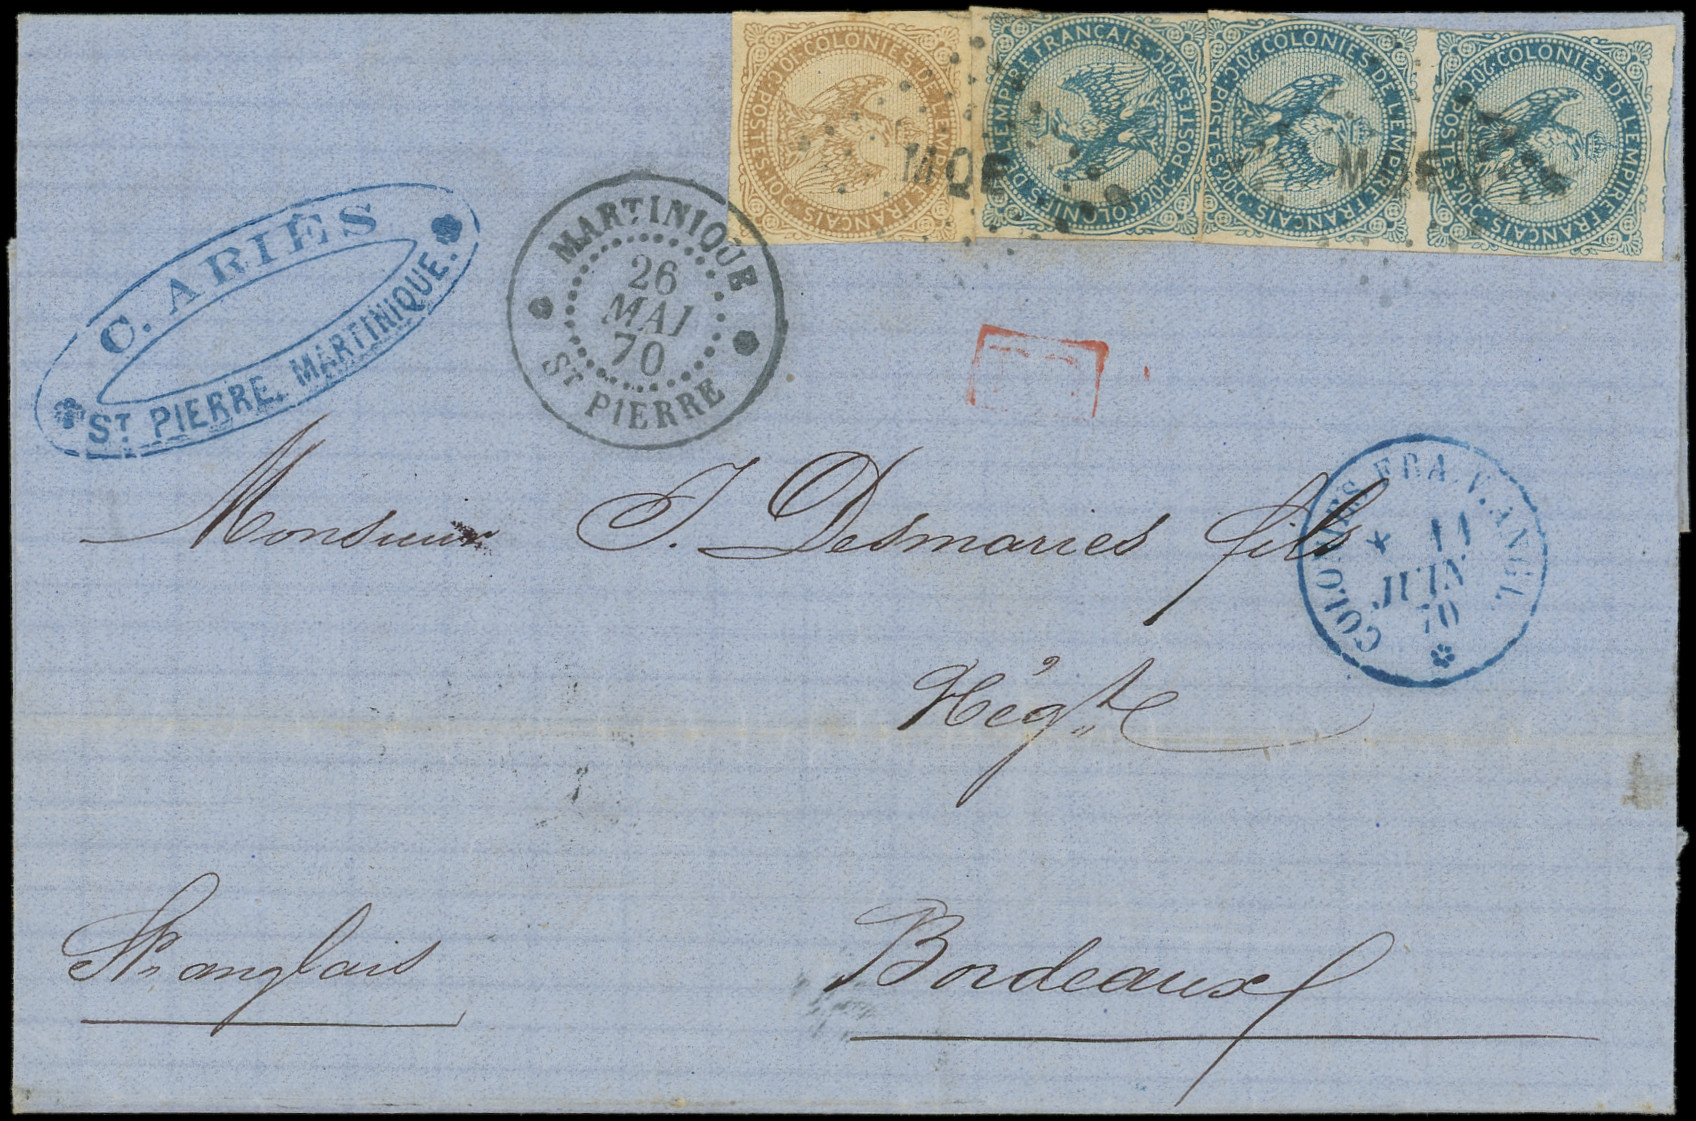 COLONIES DE L'EMPIRE FRANÇAIS · POSTES · 10C · 10C
COLONIES DE L'EMPIRE FRANÇAIS · POSTES · 20C · 20C
COLONIES DE L'EMPIRE FRANÇAIS · POSTES · 20C · 20C
COLONIES DE L'EMPIRE FRANÇAIS · POSTES · 20C · 20C
MQE
MQE
C. ARIÈS
ST PIERRE, MARTINIQUE.
MARTINIQUE
26
MAI
70
ST PIERRE
COLONIES FRA. V. ANGL.
11
JUIN
70
Monsieur J. Desmaries fils
Négte
Bordeaux
St anglais